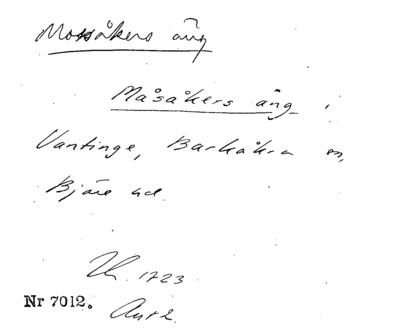 Mossåkers äng
Måsåkers äng i
Vantinge, Barkåkra sn,
Bjäre hd.
1723
Nr 7012.